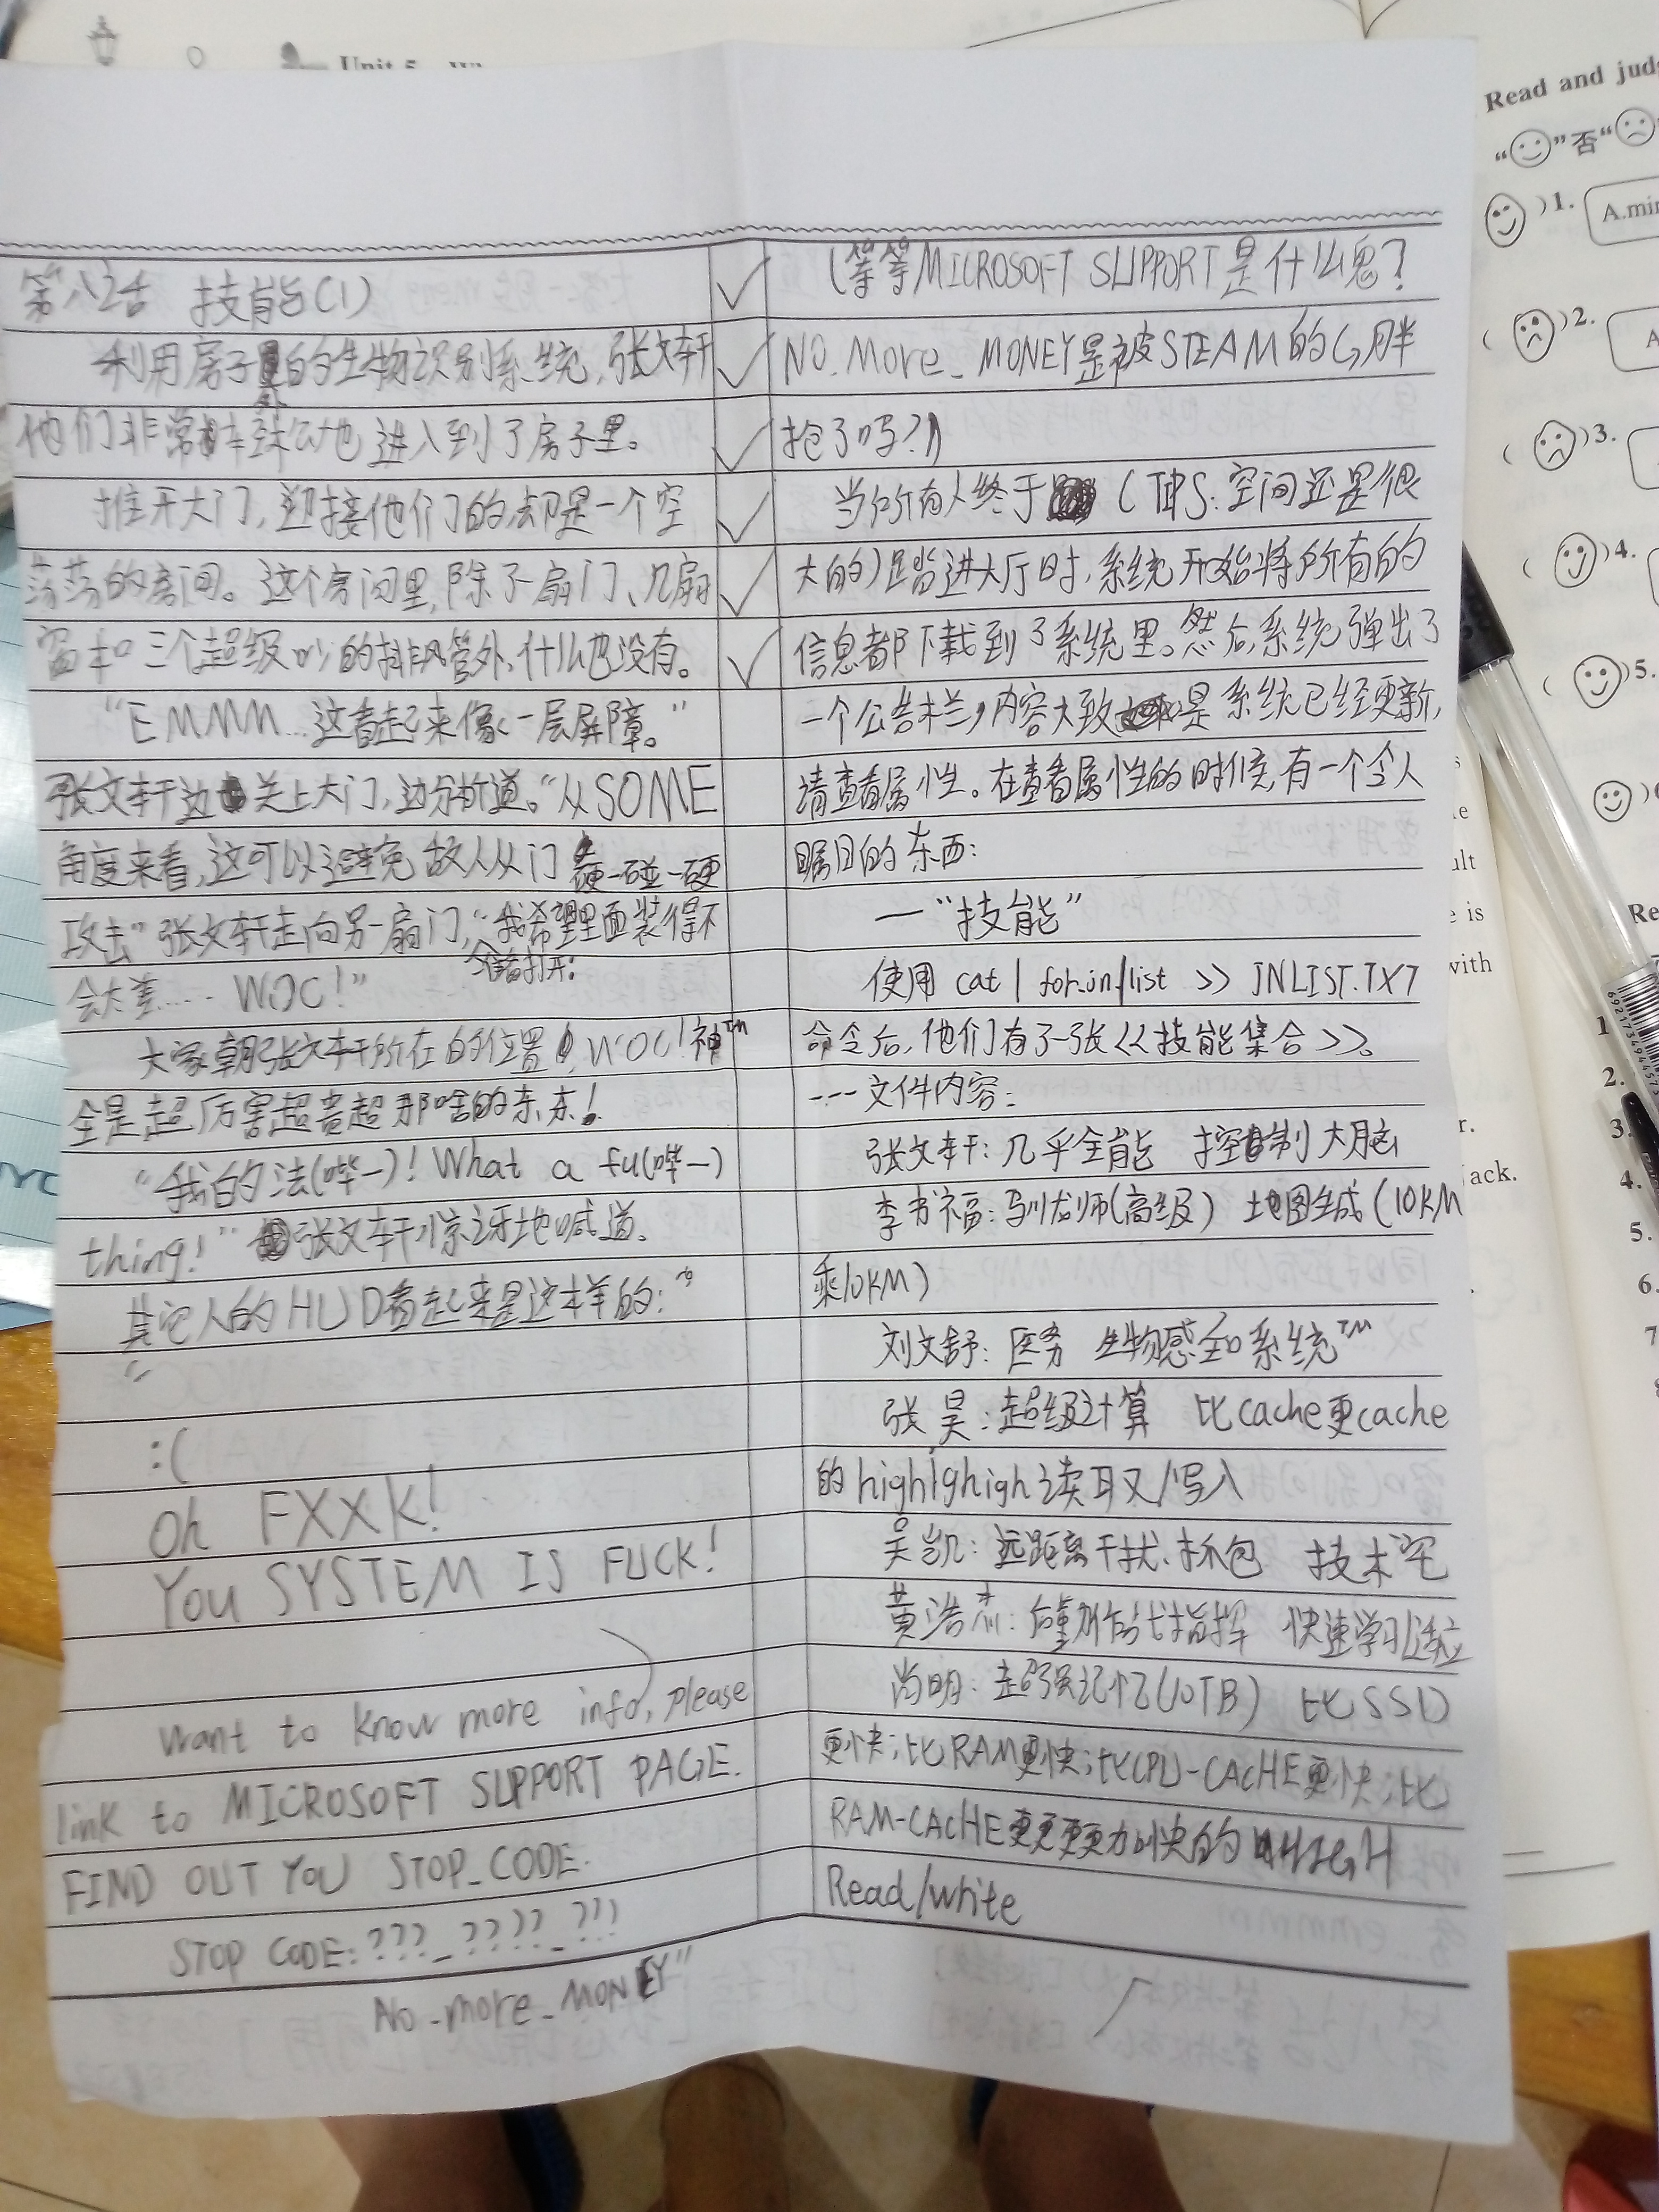 第八话 技能(1)
利用房子外的生物识别系统,张文轩
他们非常轻松地进入到了房子里。
推开大门,迎接他们的却是一个空
荡荡的房间。这个房间里,除了一扇门、几扇
窗和三个超级吵的排风管外,什么也没有。
“EMMM...这看起来像一层屏障。”
张文轩边关上大门,边分析道。“从SOME
角度来看,这可以避免敌人从门硬碰硬
攻击”张文轩走向另一扇门,“我希望里面装得不
会太差..... WOC!”
打开:
大家朝张文轩所在的位置,WOC!神™
全是超厉害超贵超那啥的东东!
“我的法(哔一)! What a fu(哔一)
thing!” 张文轩惊讶地喊道。
其它人的HUD看起来是这样的:
“
:(
Oh FXXK!
You SYSTEM IS FUCK!
Want to know more info, Please
link to MICROSOFT SUPPORT PAGE.
FIND OUT YOU STOP_CODE.
STOP CODE:???_????_???
No_more_MONEY”
(等等MICROSOFT SUPPORT是什么鬼?
NO_More_MONEY是被STEAM的G胖
抢了吗?!)
当所有人终于(TIPS:空间还是很
大的)踏进大厅时,系统开始将所有的
信息都下载到了系统里。然后,系统弹出了
一个公告栏,内容大致是系统已经更新,
请查看属性。在查看属性的时候,有一个令人
瞩目的东西:
—“技能”
使用 cat | for_in/list >> INLIST.TXT
命令后,他们有了一张<<技能集合>>。
---文件内容:
张文轩:几乎全能 控制大脑
李书福:驯龙师(高级) 地图生成(10KM
乘10KM)
刘文舒:医务 生物感知系统™
张昊:超级计算 比cache更cache
的highhighhigh读取/写入
吴凯:远距离干扰、抓包 技术宅
黄浩:作战指挥 快速学习适应
尚明:超强记忆(10TB) 比SSD
更快;比RAM更快;比CPU-CACHE更快;比
RAM-CACHE更更更更加快的HIGH
Read/write
Read and jud
“☺”否“☹”
)1.
A.min
( )2.
A
( )3.
( )4.
( )5.
Unit 5
ult
e is
with
r.
Jack.
Re
1
2.
3.
4.
5.
6.
7
8